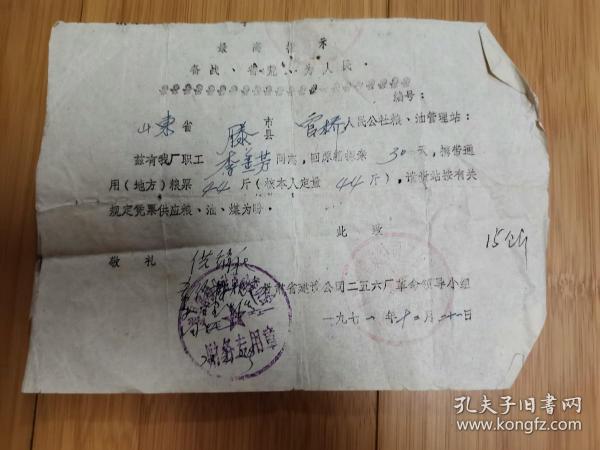 最高指示
备战、备荒、为人民。
编号：
山东省 滕 市县 官桥 人民公社粮、油管理站：
兹有我厂职工 李善芳 同志，回原籍探亲 30 天，携带通
用（地方）粮票 44 斤（按本人定量 44 斤），请贵站按有关
规定凭票供应粮、油、煤为盼。
此致
15公斤
敬礼
肃省建设公司二五六厂革命领导小组
一九七一年十二月二十一日
财务专用章
孔夫子旧书网
www.kongfz.com